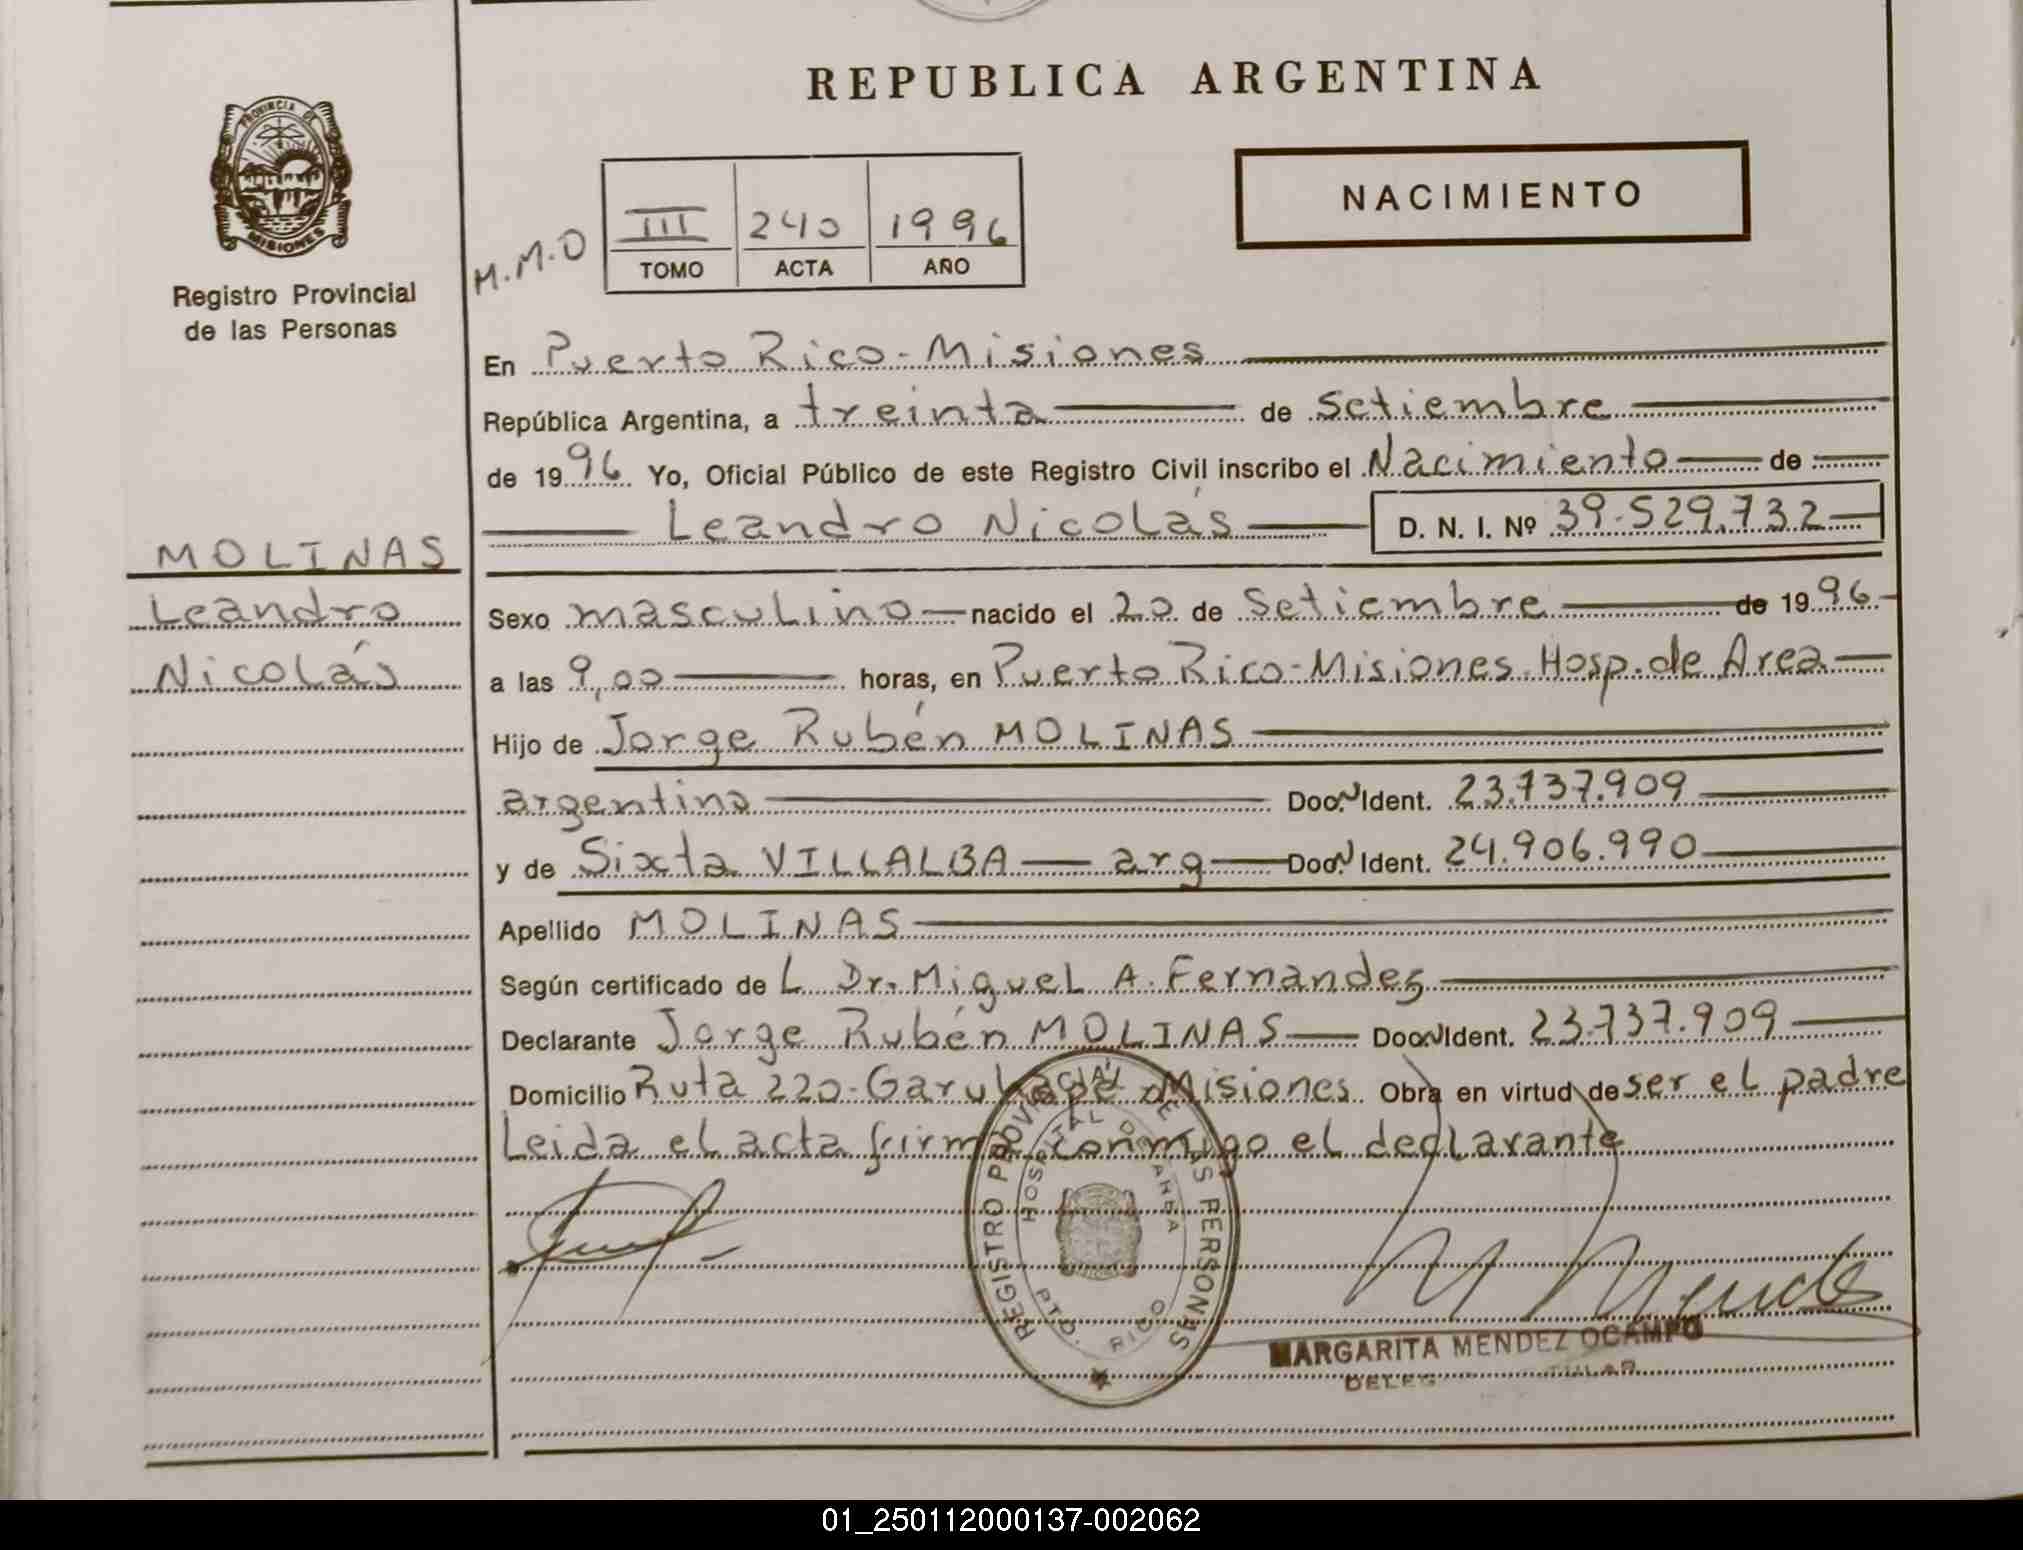 REPUBLICA ARGENTINA
PROVINCIA DE MISIONES
Registro Provincial
de las Personas
NACIMIENTO
M.M.O
III 240 1996
TOMO ACTA AÑO
En Puerto Rico-Misiones
República Argentina, a treinta de setiembre
de 1996 Yo, Oficial Público de este Registro Civil inscribo el Nacimiento de
Leandro Nicolás D. N. I. Nº 39.529.732
MOLINAS
Leandro
Nicolás
Sexo masculino nacido el 20 de Setiembre de 1996
a las 9,00 horas, en Puerto Rico-Misiones. Hosp. de Area
Hijo de Jorge Rubén MOLINAS
argentino Doc. N Ident. 23.737.909
y de Sixta VILLALBA arg Doc. N Ident. 24.906.990
Apellido MOLINAS
Según certificado de L Dr. Miguel A. Fernandez
Declarante Jorge Rubén MOLINAS Doc. N Ident. 23.737.909
Domicilio Ruta 220-Garuhapé Misiones. Obra en virtud de ser el padre
Leida el acta firma conmigo el declarante
REGISTRO PROVINCIAL DE LAS PERSONAS
HOSPITAL DE AREA
PTO. RICO
M Mendez
MARGARITA MENDEZ OCAMPO
01_250112000137-002062